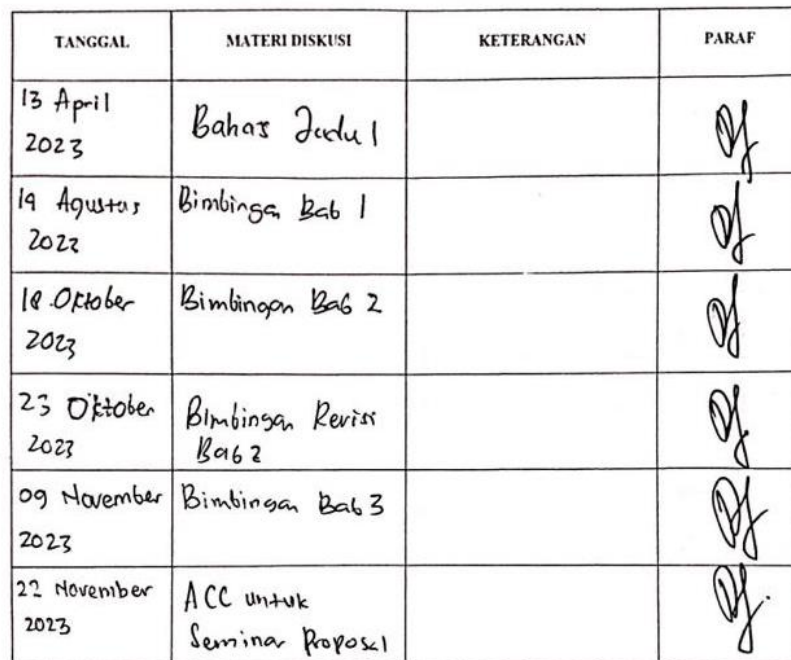 TANGGAL MATERI DISKUSI KETERANGAN PARAF
13 April
2023
Bahas Judul
Agustus
Bimbingan Bab 1
Oktober
2023
Bimbingan Bab 2
23 Oktober
2023
Bimbingan Revisi
Bab 2
09 November
2023
Bimbingan Bab 3
22 November
2023
ACC untuk
Seminar Proposal